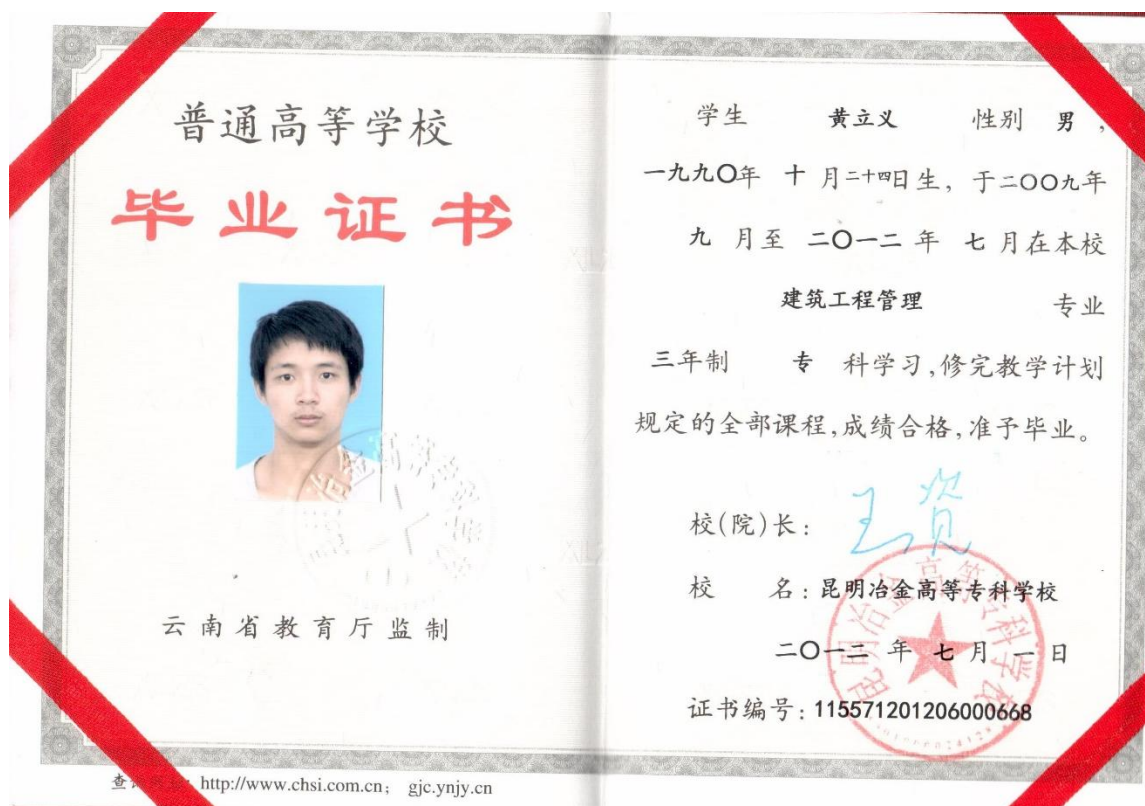 普通高等学校
毕业证书
云南省教育厅监制
http://www.chsi.com.cn; gjc.ynjy.cn
学生 黄立义 性别 男,
一九九〇年 十 月二十四日生, 于二〇〇九年
九 月至 二〇一二 年 七 月在本校
建筑工程管理 专业
三年制 专 科学习,修完教学计划
规定的全部课程,成绩合格,准予毕业。
校(院)长:
校 名:昆明冶金高等专科学校
二〇一二 年 七 月 一 日
证书编号:115571201206000668
昆明冶金高等专科学校